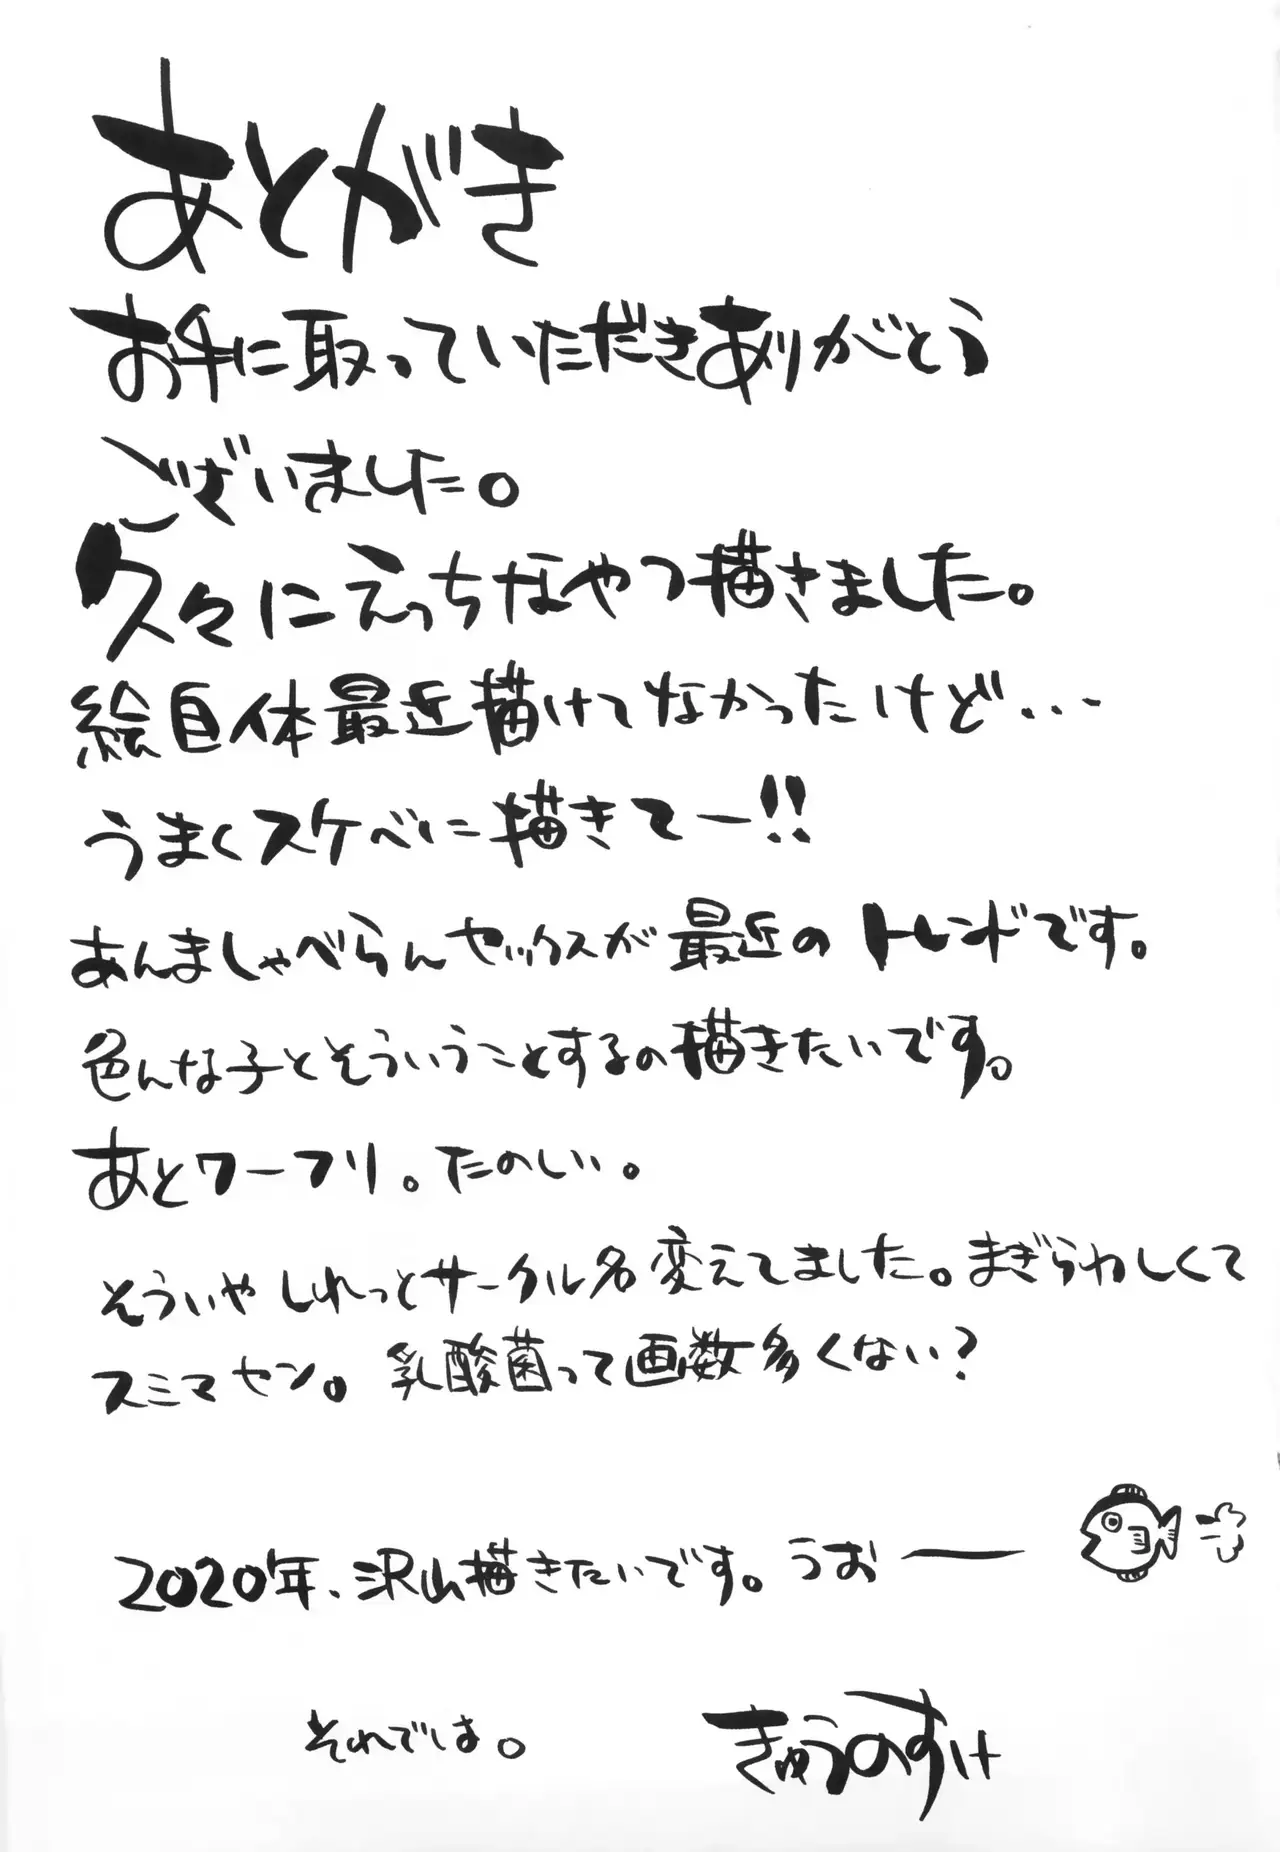 あとがき
お手に取っていただきありがとう
ございました。
久々にえっちなやつ描きました。
絵自体最近描けてなかったけど…
うまくスケベに描きてー!!
あんましゃべらんセックスが最近のトレンドです。
色んな子とそういうことするの描きたいです。
あとワーフリ。たのしい。
そういやしれっとサークル名変えてました。まぎらわしくて
スミマセン。乳酸菌って画数多くない?
2020年、沢山描きたいです。うおー
それでは。 きゅうのすけ